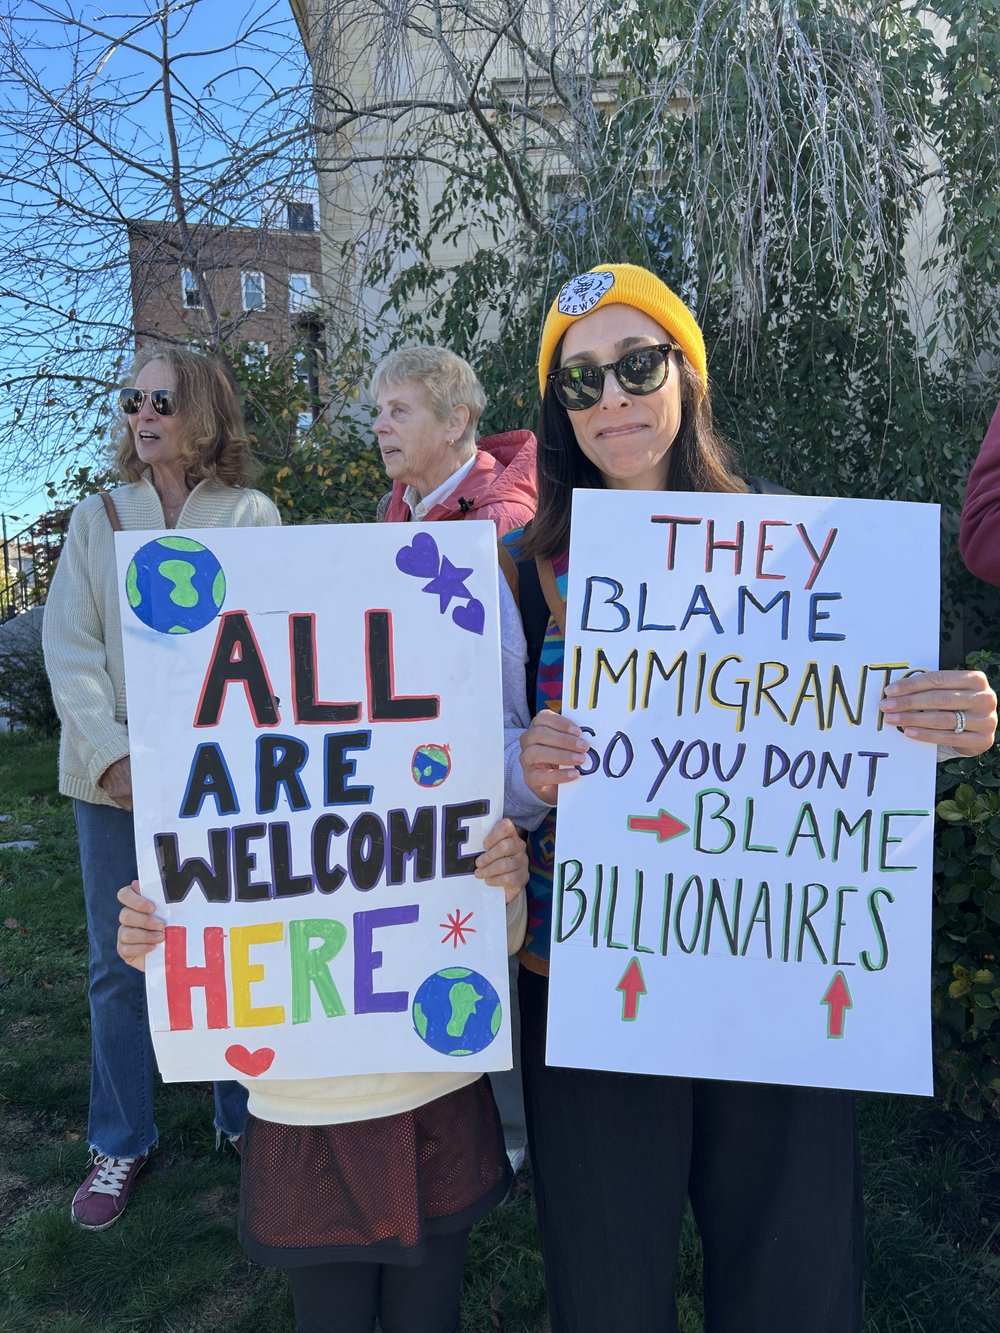 ALL
ARE
WELCOME
HERE
THEY
BLAME
IMMIGRANTS
SO YOU DONT
BLAME
BILLIONAIRES